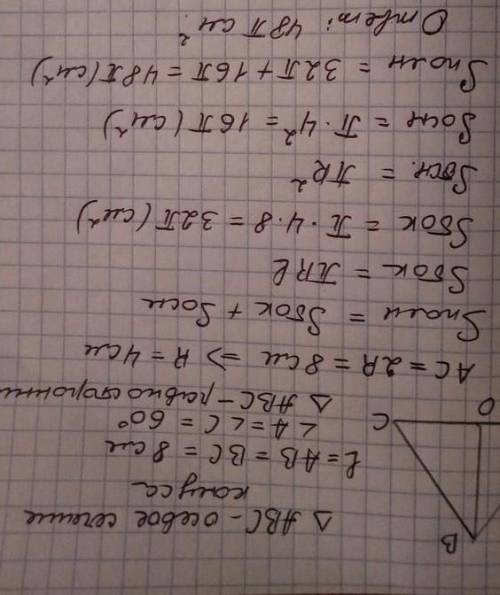 B
O
C
△ ABC - осевое сечение
конуса
ℓ = AB = BC = 8 см
∠A = ∠C = 60°
△ ABC - равносторонний
AC = 2R = 8 см ⇒ R = 4 см
Sполн = Sбок + Sосн
Sбок = πRℓ
Sбок = π · 4 · 8 = 32π (см²)
Sосн. = πR²
Sосн = π · 4² = 16π (см²)
Sполн = 32π + 16π = 48π (см²)
Ответ: 48π см².